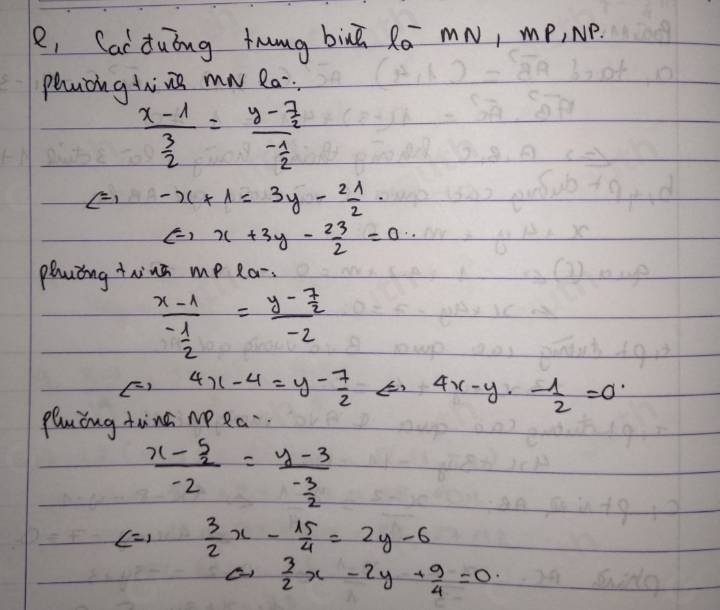 e, Các đường trung bình là MN, MP, NP.
phương trình MN là:
x - 1 / 3/2 = y - 7/2 / -1/2
<=> -x + 1 = 3y - 21/2.
<=> x + 3y - 23/2 = 0.
phương trình MP là:
x - 1 / -1/2 = y - 7/2 / -2
<=> 4x - 4 = y - 7/2 <=> 4x - y - 1/2 = 0.
phương trình NP là:
x - 5/2 / -2 = y - 3 / -3/2
<=> 3/2 x - 15/4 = 2y - 6
<=> 3/2 x - 2y + 9/4 = 0.